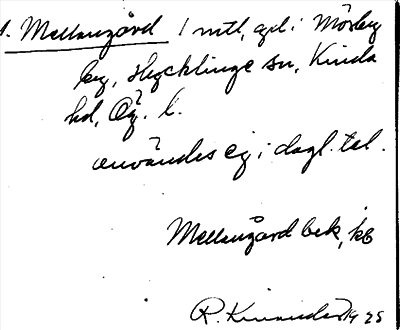 1. Mellangård 1 mtl, gd i Mösbg
by, Hycklinge sn, Kinda
hd, Ög. l.
användes ej i dagl. tal.
Mellangård bek, kb
R. Kinander 1925